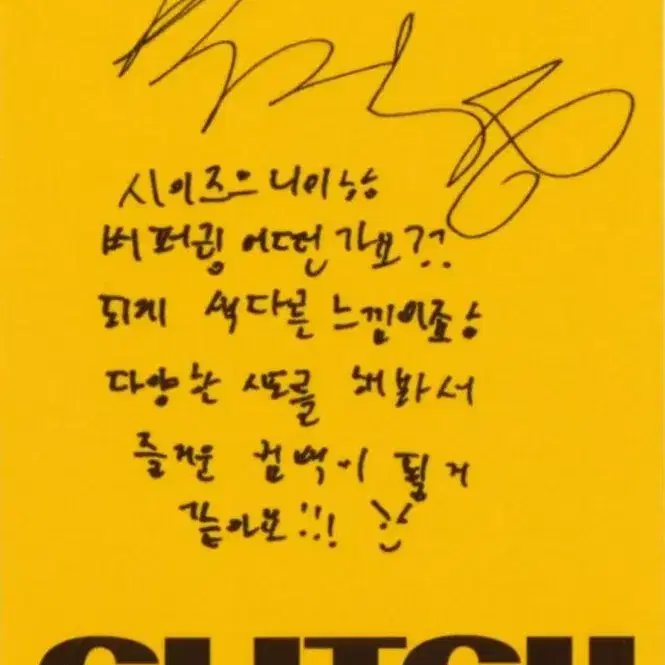 시이즈으니이ㅎㅎ
버퍼링 어떤가요??
되게 색다른 느낌이죠ㅎ
다양한 시도를 해봐서
즐거운 컴백이 될거
같아요!!!
GLITCH